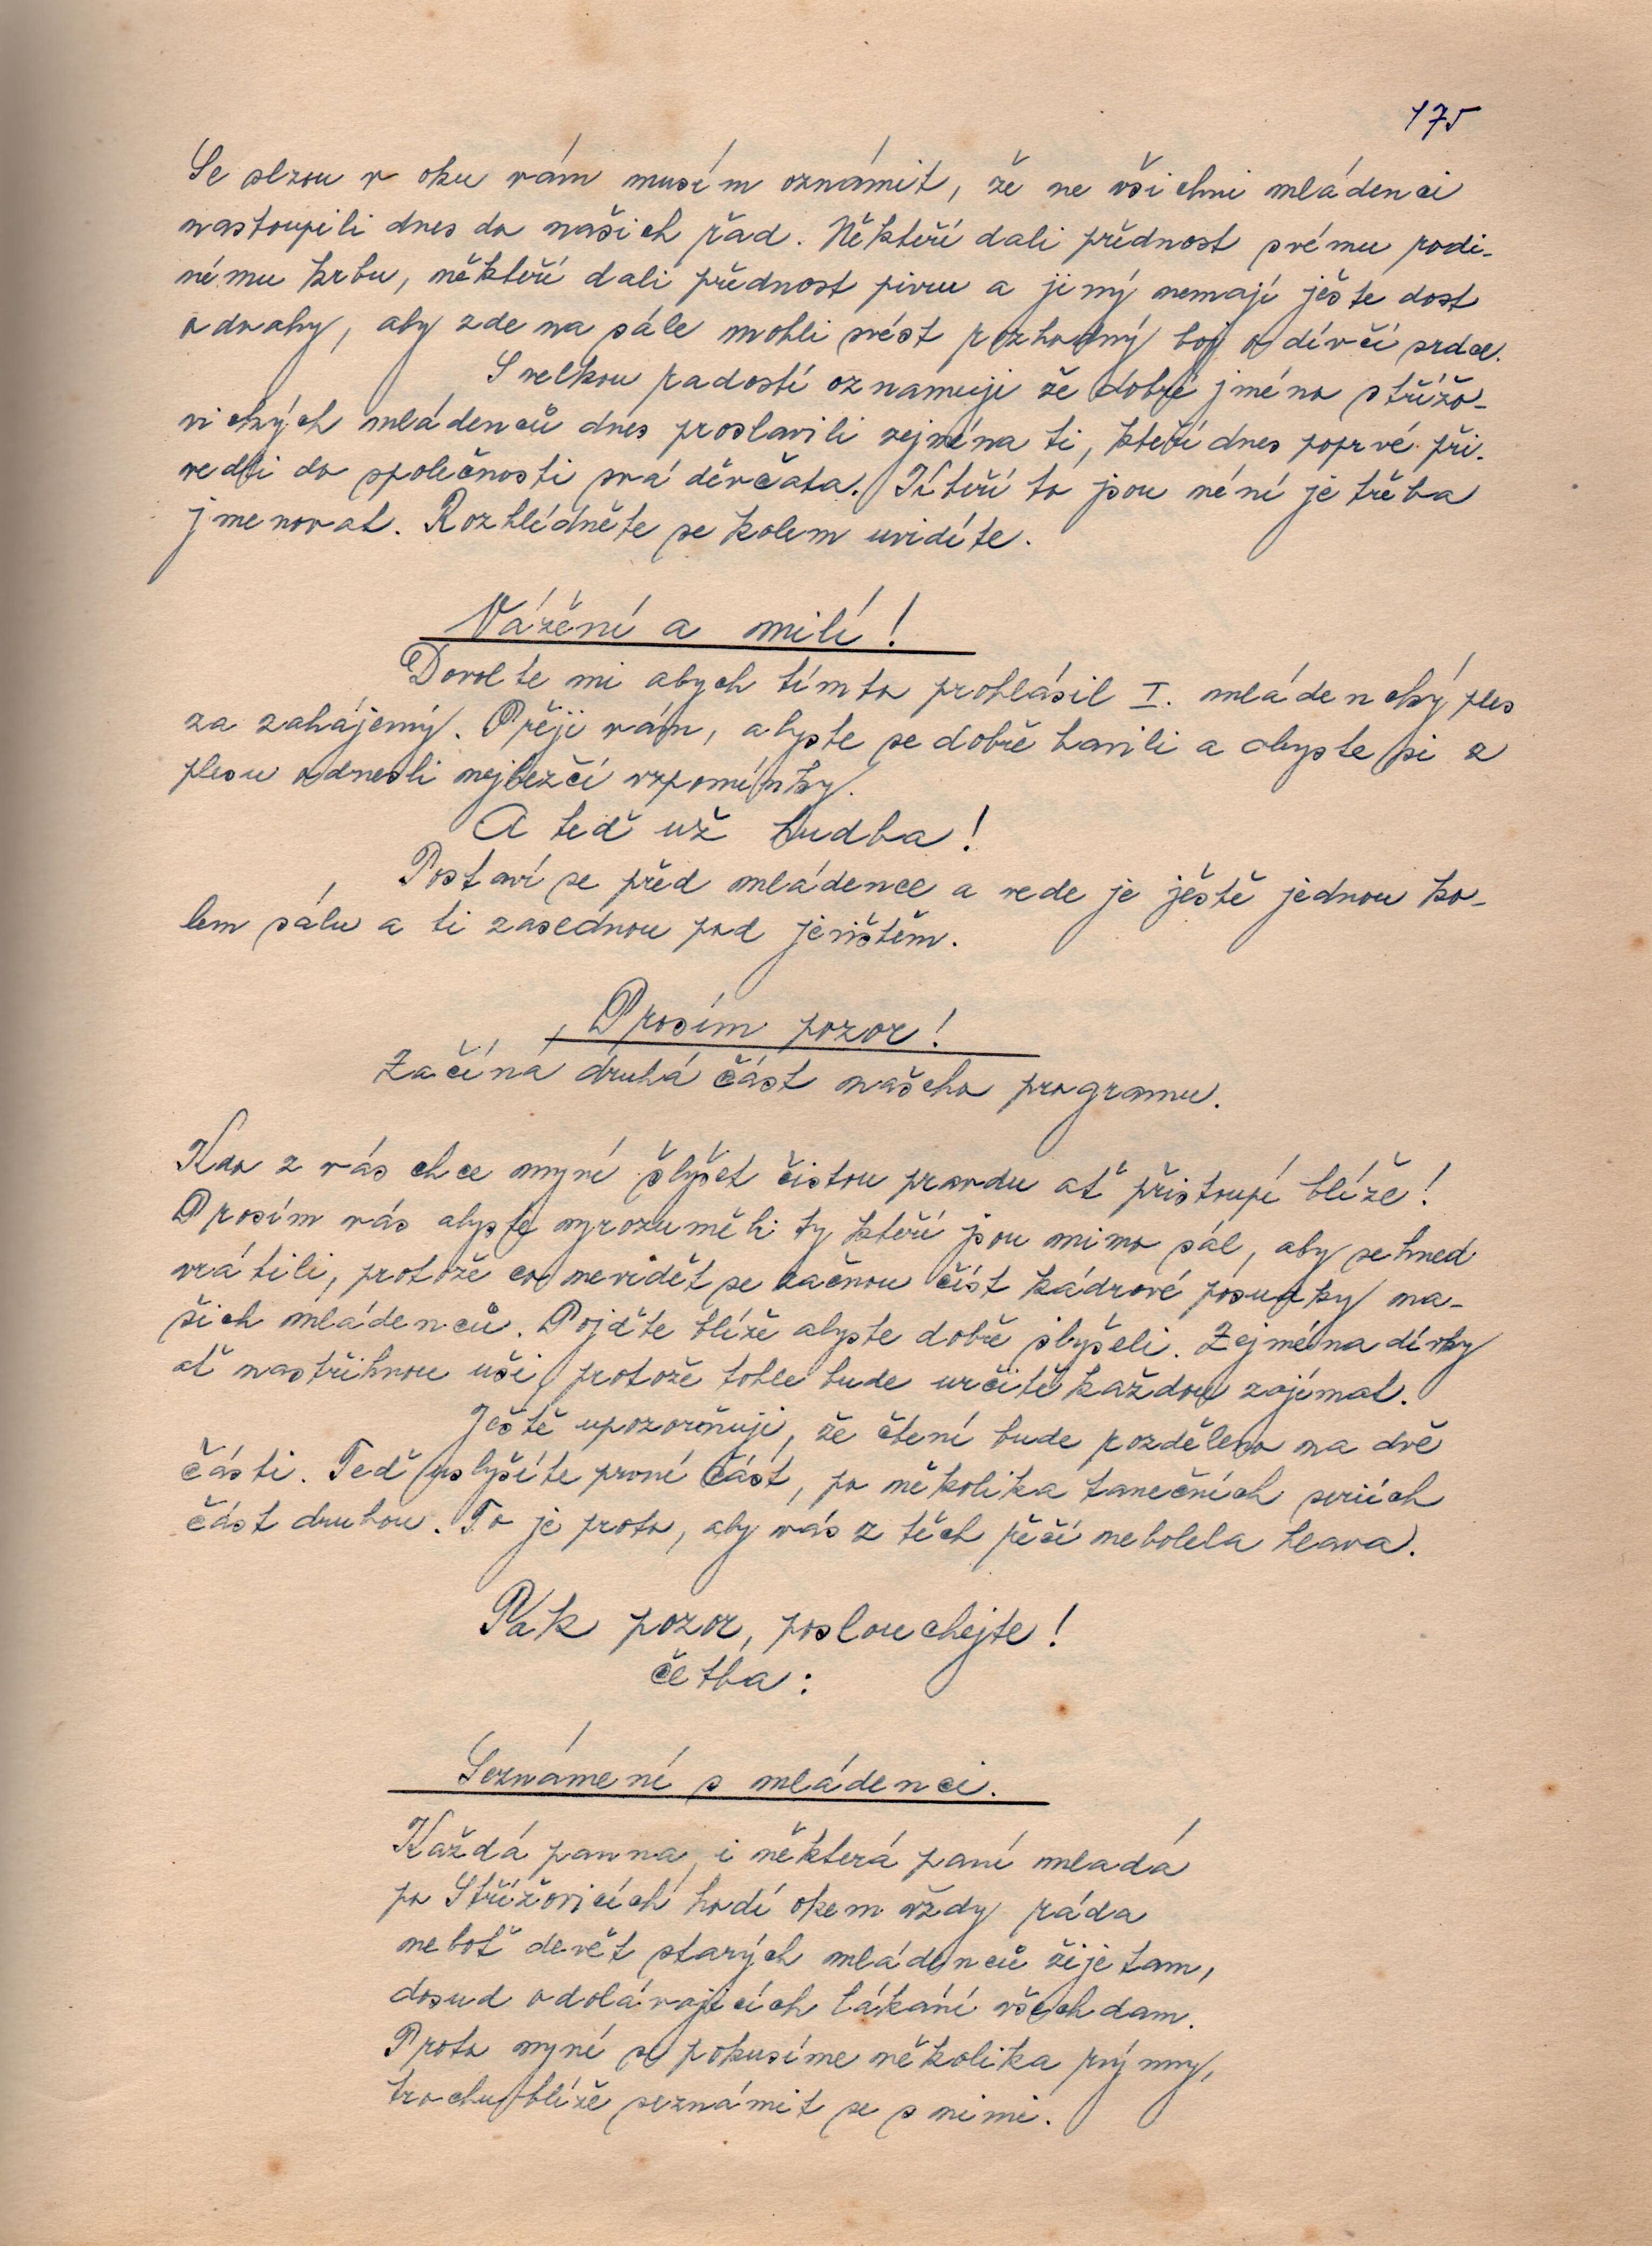 175
Se slzou v oku vám musím oznámit, že ne všichni mládenci
nastoupili dnes do našich řad. Někteří dali přednost svému rodi-
nému krbu, někteří dali přednost pivu a jiný nemají ješte dost
odvahy, aby zde na sále mohli svést rozhodný boj o dívčí srdce.
S velkou radostí oznamuji že dobré jméno střížo-
vických mládenců dnes proslavili zejména ti, kteří dnes poprvé při-
vedli do společnosti svá děvčata. Kteří to jsou néní je třeba
jmenovat. Rozhlédněte se kolem uvidíte.
Vážení a milí!
Dovolte mi abych tímto prohlásil I. mládenecký ples
za zahájený. Přeji vám, abyste se dobře bavili a abyste si z
plesu odnesli nejhezčí vzpomínky.
A teď už hudba!
Postaví se před mládence a vede je ještě jednou ko-
lem sálu a ti zasednou pod jevištěm.
Prosím pozor!
Začíná druhá část našeho programu.
Kdo z vás chce nyní šlyšet čistou pravdu ať přistoupí blíže!
Prosím vás abyste vyrozuměli ty kteří jsou mimo sál, aby se hned
vrátili, protože co nevidět se začnou číst kádrové posudky na-
šich mládenců. Pojďte blíže abyste dobře slyšeli. Zejména dívky
ať nastřihnou uši, protože tohle bude určitě každou zajímat.
Ještě upozorňuji, že čtení bude rozděleno na dvě
části. Teď uslyšíte první část, po několika tanečních seriích
část druhou. To je proto, aby vás z těch řečí nebolela hlava.
Pak pozor, poslouchejte!
četba:
Seznámení s mládenci.
Každá panna, i některá paní mladá
po Střížovicích hodí okem vždy ráda
neboť devět starých mládenců žije tam,
dosud odolávajících lákání všech dam.
Proto nyní se pokusíme několika rýmy,
trochu blíže seznámit se s nimi.